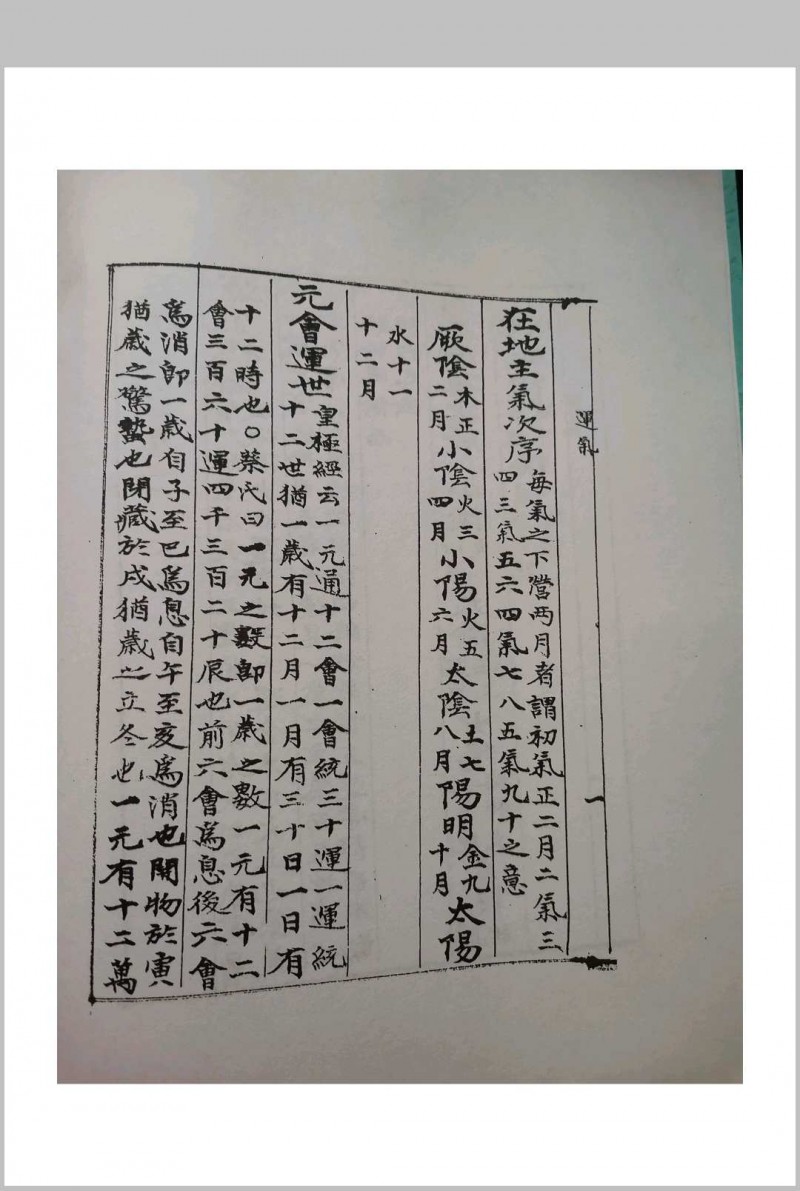 運氣 一
在地主氣次序 每氣之下營兩月者謂初氣正二月二氣三
四三氣五六四氣七八五氣九十之意
厥陰木正二月小陰火三四月小陽火五六月太陰土七八月陽明金九十月太陽
水十一
十二月
元會運世 皇極經云一元通十二會一會統三十運一運統
十二世猶一歲有十二月一月有三十日一日有
十二時也○蔡氏曰一元之數即一歲之數一元有十二
會三百六十運四千三百二十辰也前六會爲息後六會
爲消即一歲自子至巳爲息自午至亥爲消也開物於寅
猶歲之驚蟄也閉藏於戌猶歲之立冬也一元有十二萬